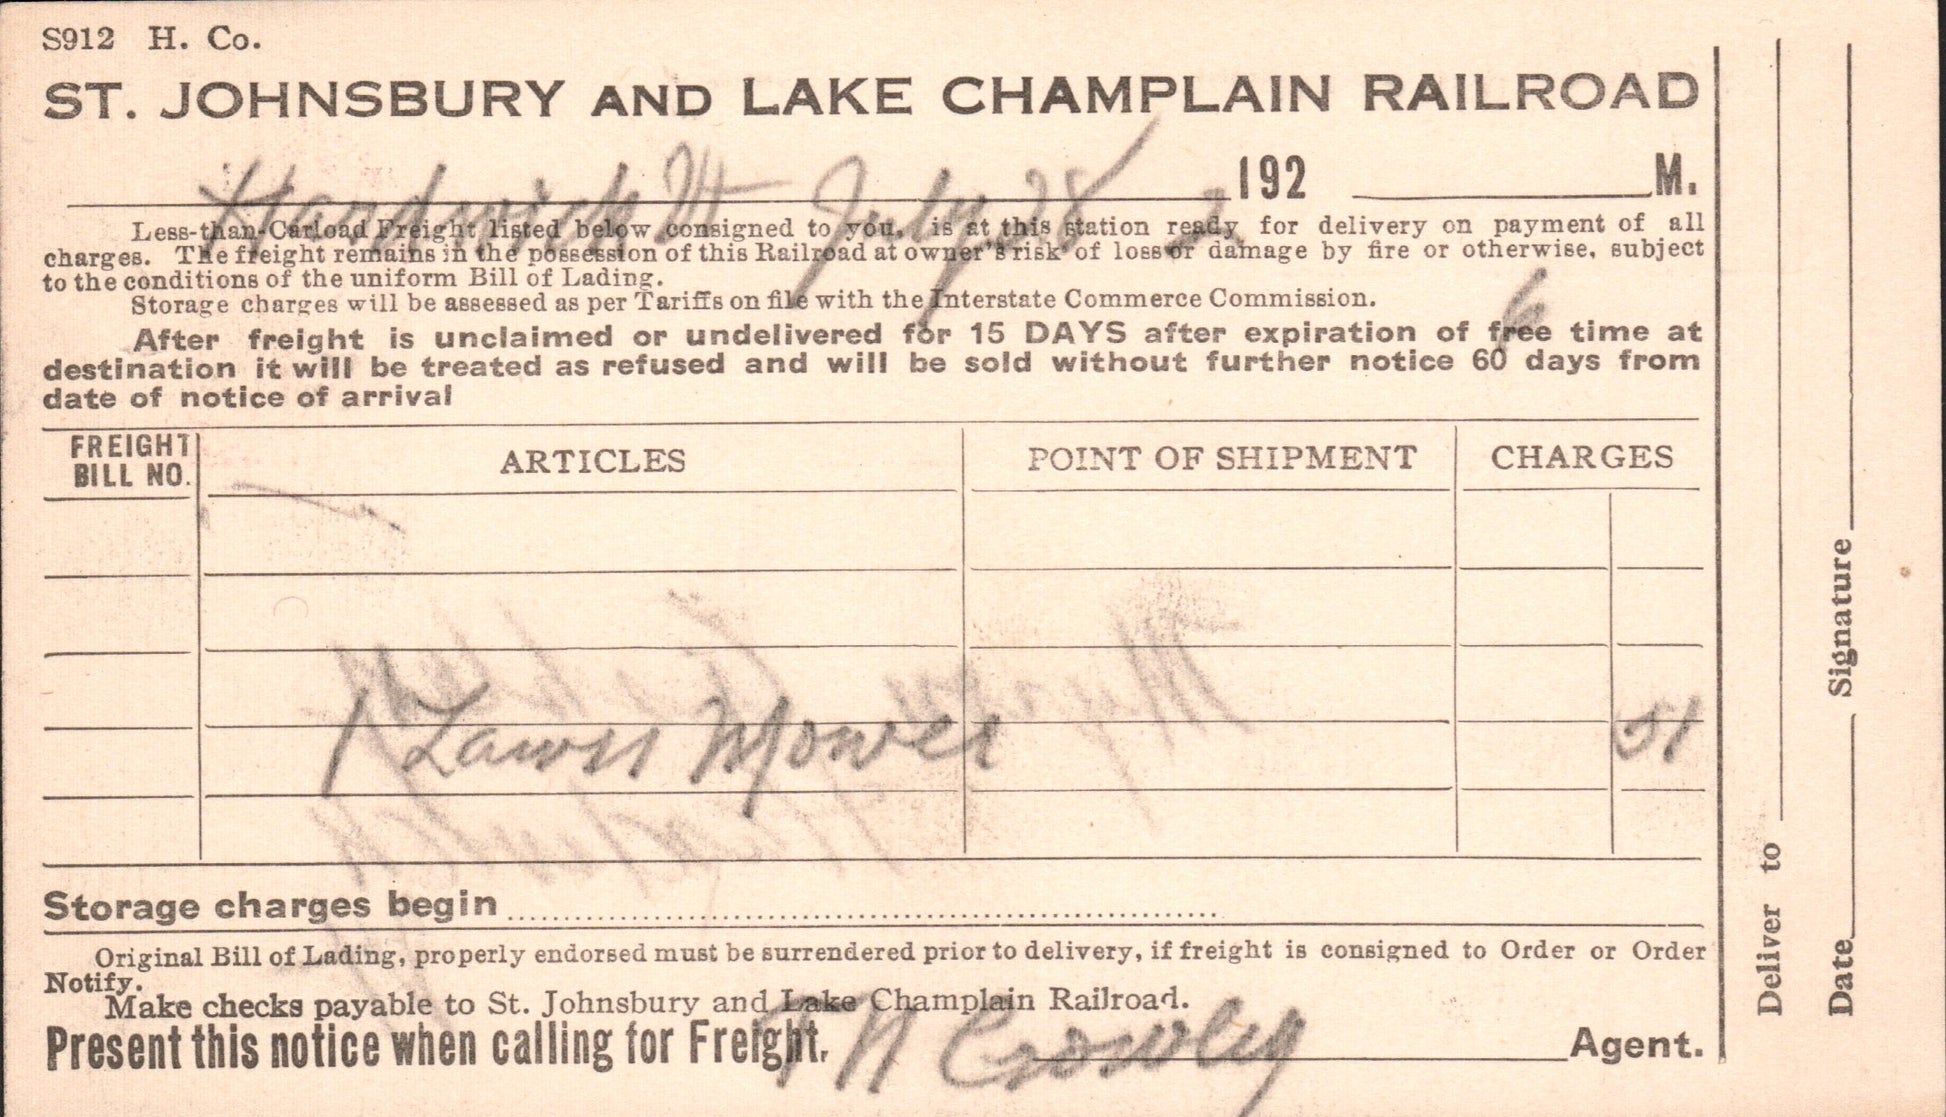 S912 H. Co.
ST. JOHNSBURY AND LAKE CHAMPLAIN RAILROAD
Hardwick Vt July 28 192 M.
Less-than-Carload Freight listed below consigned to you, is at this station ready for delivery on payment of all
charges. The freight remains in the possession of this Railroad at owner's risk of loss or damage by fire or otherwise, subject
to the conditions of the uniform Bill of Lading.
Storage charges will be assessed as per Tariffs on file with the Interstate Commerce Commission.
6
After freight is unclaimed or undelivered for 15 DAYS after expiration of free time at
destination it will be treated as refused and will be sold without further notice 60 days from
date of notice of arrival
FREIGHT BILL NO. ARTICLES POINT OF SHIPMENT CHARGES
1 Lawn Mower 51
Storage charges begin
Original Bill of Lading, properly endorsed must be surrendered prior to delivery, if freight is consigned to Order or Order
Notify.
Make checks payable to St. Johnsbury and Lake Champlain Railroad.
Present this notice when calling for Freight. N Crowley Agent.
Deliver to
Date Signature